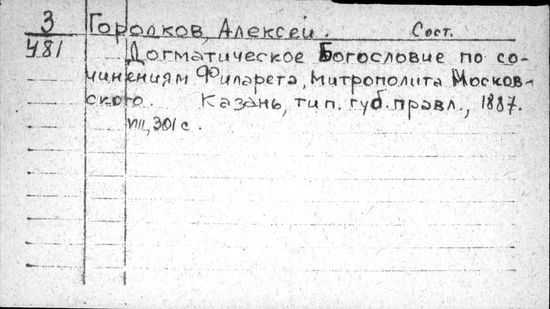 3 Городков, Алексей. Сост.
481 Догматическое Богословие по со-
чинениям Филарета, митрополита Москов-
ского. Казань, тип. губ. правл., 1887.
VIII, 301 с.